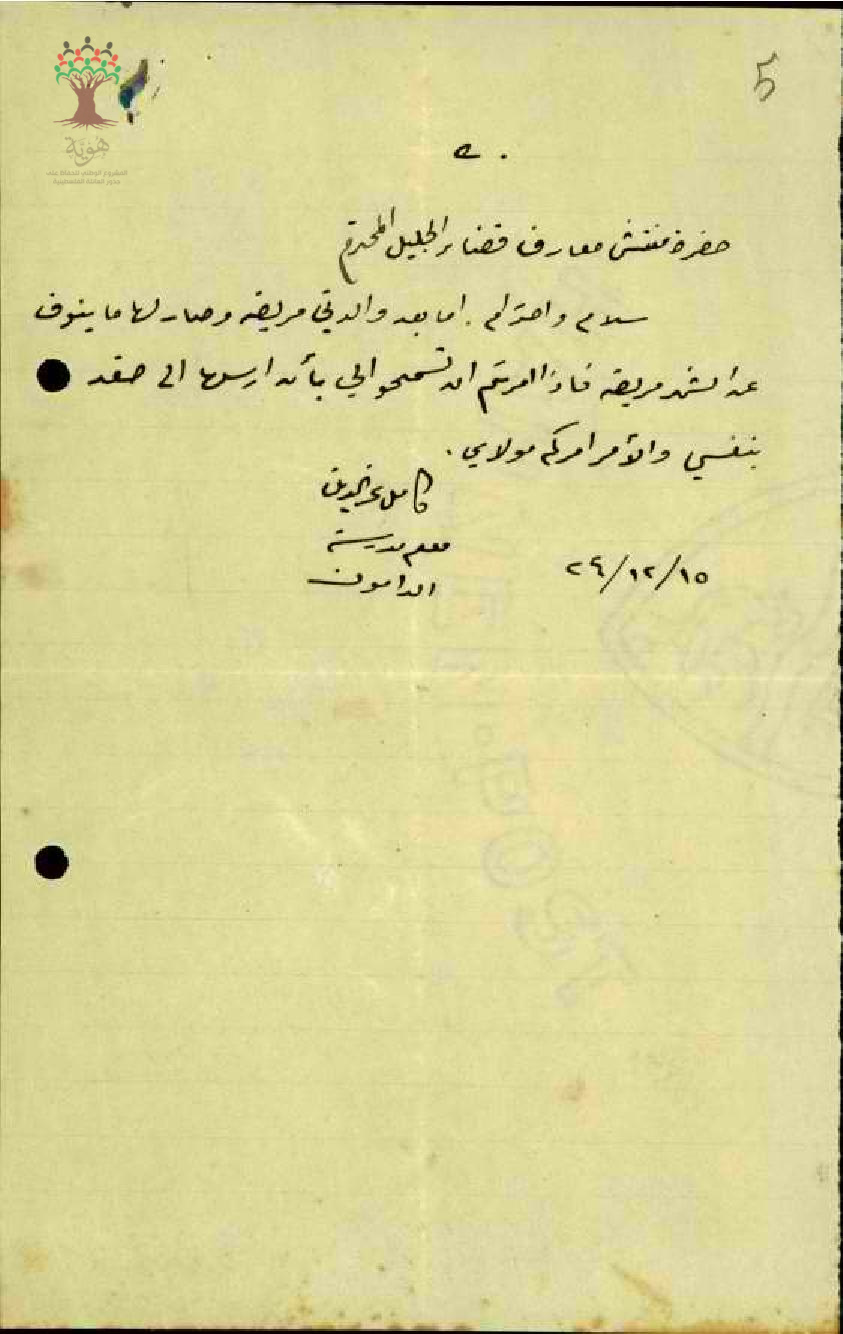 5
هوية
المشروع الوطني للحفاظ على
جذور العائلة الفلسطينية
حضرة مفتش معارف قضاء الجليل المحترم
سلام واحترام. اما بعد والدتي مريضه وصار لها ما ينوف
عن الشهر مريضه فاذا امرتم ان تسمحوا لي بأن ارسلها الى صفد
بنفسي والأمر امركم مولاي.
كامل عز الدين
معلم مدرسة
الدامون
٢٤/١٢/١٥